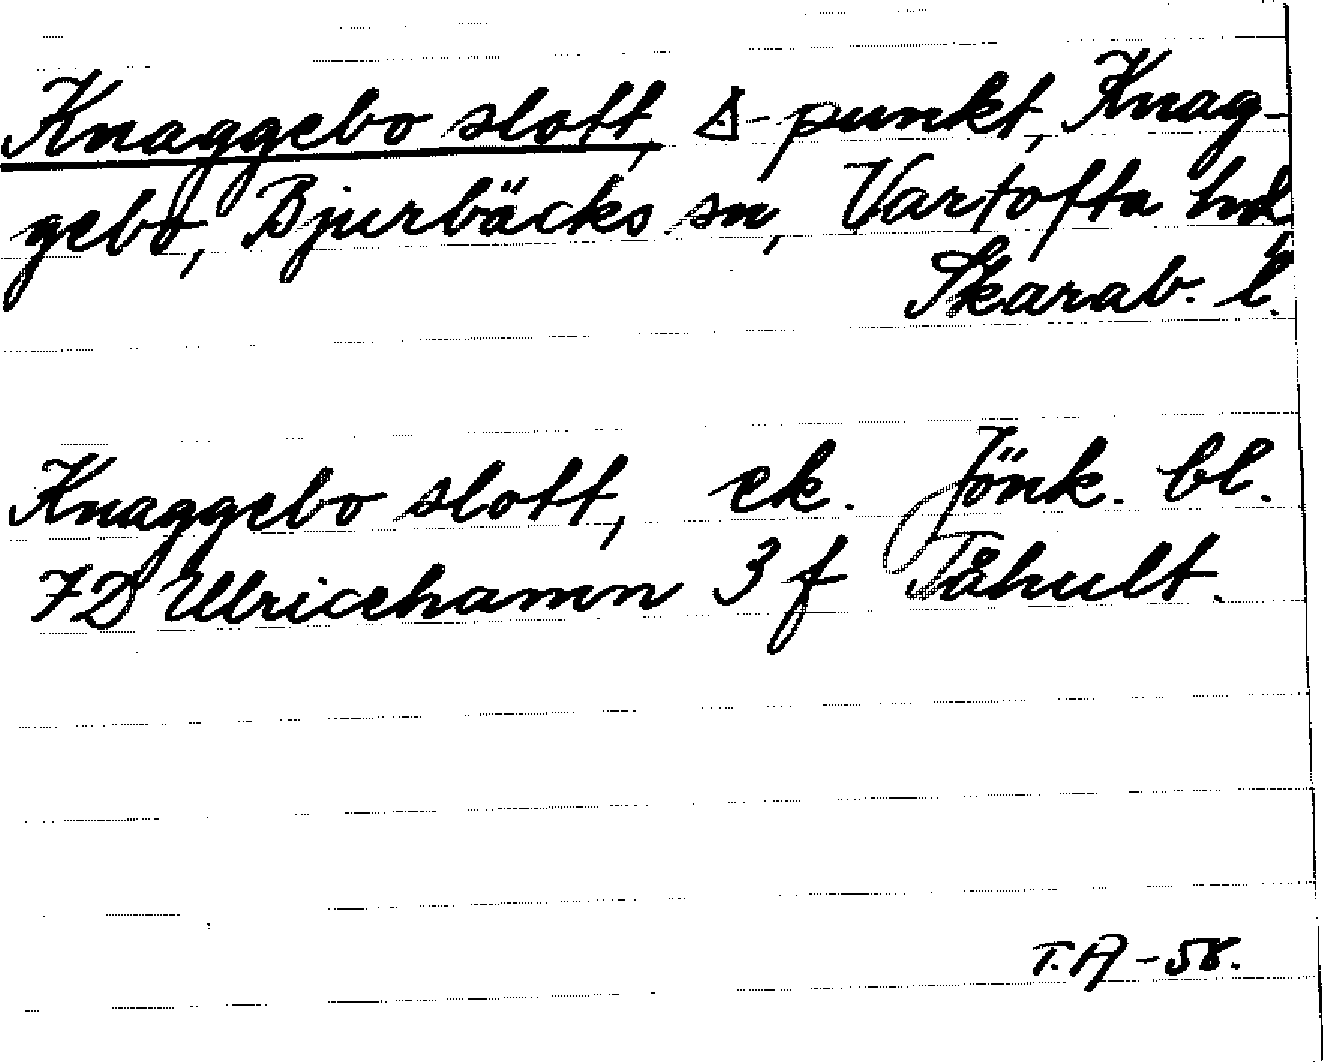 Knaggebo slott, Δ-punkt, Knag-
gebo, Bjurbäcks sn, Vartofta hd,
Skarab. l.
Knaggebo slott, ek. Jönk. bl.
7D Ulricehamn 3 f Tåhult.
T.A -58.